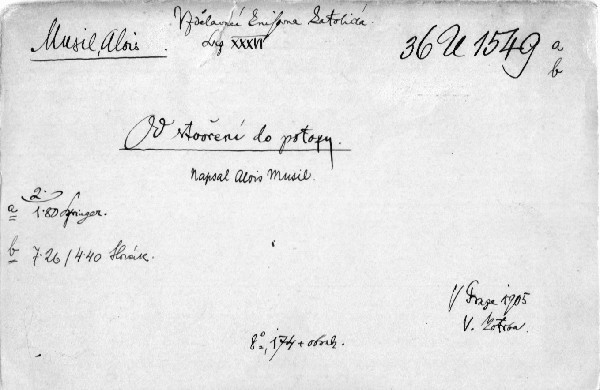 Musil, Alois.
Vzdělavací knihovna katolická.
XXXVI
36 U 1549 a
b
Od stvoření do potopy.
Napsal Alois Musil.
2.
a 1.80 Springer.
b 7.26/440 Horák.
V Praze 1905
V. Kotrba.
8°, 174 + obsah.